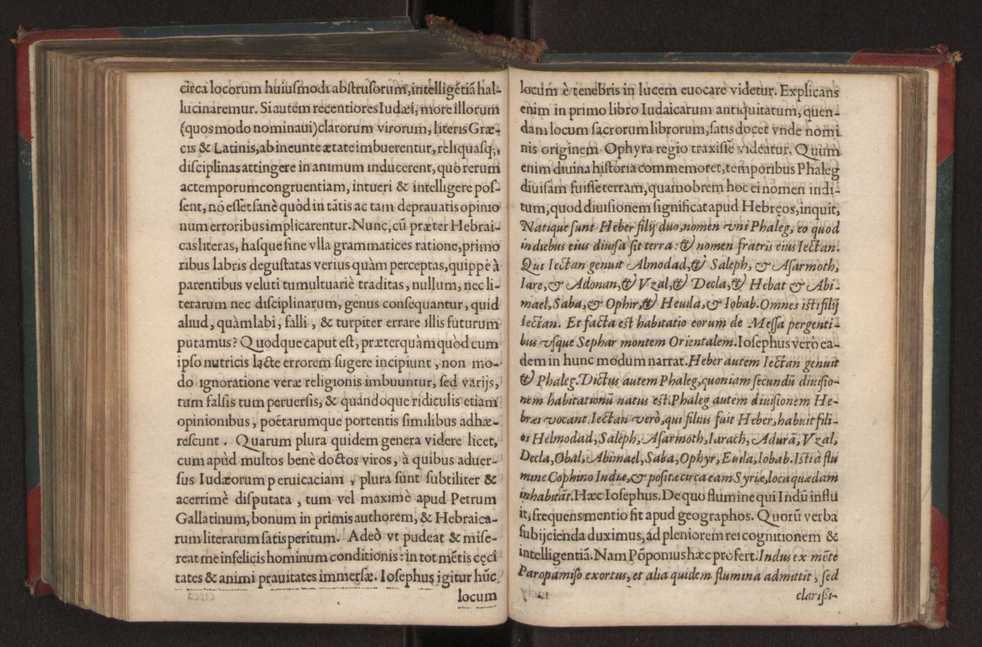 circa locorum huiusmodi abstrusorum, intelligẽtiã hal-
lucinaremur. Si autem recentiores Iudæi, more illorum
(quos modo nominaui) clarorum virorum, literis Græ-
cis & Latinis, ab ineunte ætate imbuerentur, reliquasq;,
disciplinas attingere in animum inducerent, quò rerum
ac temporum congruentiam, intueri & intelligere pos-
sent, nõ esset sanè quòd in tãtis ac tam deprauatis opinio
num erroribus implicarentur. Nunc, cũ præter Hebrai-
cas literas, hasque sine vlla grammatices ratione, primo
ribus labris degustatas verius quàm perceptas, quippè à
parentibus veluti tumultuariè traditas, nullum, nec li-
terarum nec disciplinarum, genus consequantur, quid
aliud, quàm labi, falli, & turpiter errare illis futurum
putamus? Quodque caput est, præterquàm quòd cum
ipso nutricis lacte errorem sugere incipiunt, non mo-
do ignoratione veræ religionis imbuuntur, sed varijs,
tum falsis tum peruersis, & quandoque ridiculis etiam
opinionibus, poëtarumque portentis similibus adhæ-
rescunt. Quarum plura quidem genera videre licet,
cum apud multos benè doctos viros, à quibus aduer-
sus Iudæorum peruicaciam, plura sunt subtiliter &
acerrimè disputata, tum vel maximè apud Petrum
Gallatinum, bonum in primis authorem, & Hebraica-
rum literarum satis peritum. Adeò vt pudeat & mise-
reat me infelicis hominum conditionis: in tot mẽtis cęci
tates & animi prauitates immersæ. Iosephus igitur hũc
locum
locum è tenebris in lucem euocare videtur. Explicans
enim in primo libro Iudaicarum antiquitatum, quen-
dam locum sacrorum librorum, satis docet vnde nomi
nis originem Ophyra regio traxisse videatur. Quum
enim diuina historia commemoret, temporibus Phaleg
diuisam fuisse terram, quamobrem hoc ei nomen indi-
tum, quod diuisionem significat apud Hebręos, inquit,
Natique sunt Heber filij duo, nomen vni Phaleg, eo quod
in diebus eius diuisa sit terra: & nomen fratris eius Iectan.
Qui Iectan genuit Almodad, & Saleph, & Asarmoth,
Iare, & Adonan, & Vzal, & Decla, & Hebat & Abi-
mael, Saba, & Ophir, & Heuila, & Iobab. Omnes isti filij
Iectan. Et facta est habitatio eorum de Messa pergenti-
bus vsque Sephar montem Orientalem. Iosephus verò ea-
dem in hunc modum narrat. Heber autem Iectan genuit
& Phaleg. Dictus autem Phaleg, quoniam secundũ diuisio-
nem habitationũ natus est. Phaleg autem diuisionem He-
bræi vocant. Iectan verò, qui filius fuit Heber, habuit fili-
os Helmodad, Saleph, Asarmoth, Iarach, Adurã, Vzal,
Decla, Obal, Abimael, Saba, Ophyr, Euila, Iobab. Isti à flu
mine Cophino Indiæ, & positæ circa eam Syriæ, loca quædam
inhabitãt. Hæc Iosephus. De quo flumine qui Indũ influ
it, frequens mentio fit apud geographos. Quorũ verba
subijcienda duximus, ad pleniorem rei cognitionem &
intelligentiã. Nam Põponius hæc profert. Indus ex mõte
Paropamiso exortus, et alia quidem flumina admittit, sed
clarissi-